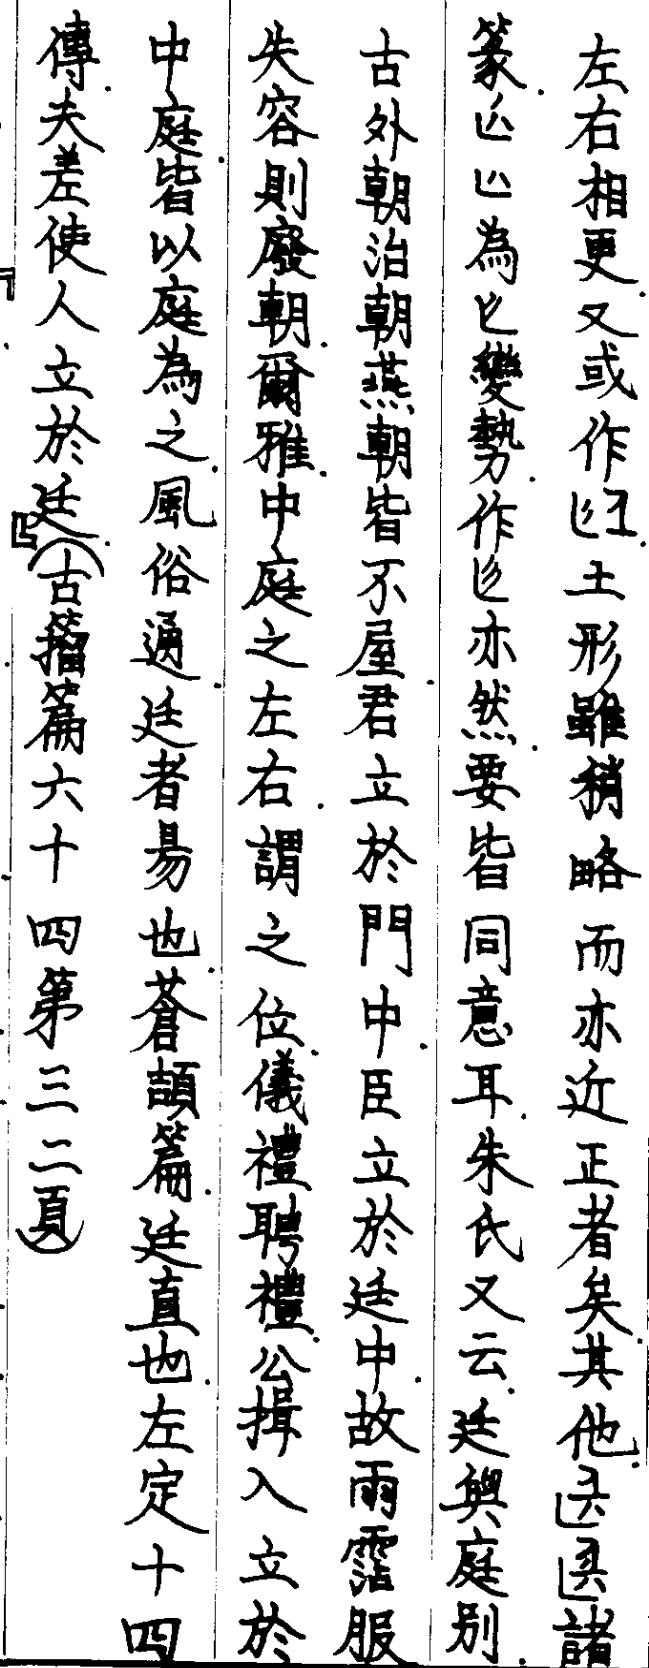 左右相更又或作土形雖稍略而亦近正者矣其他諸
篆為變勢作亦然要皆同意耳朱氏又云廷與庭別
古外朝治朝燕朝皆不屋君立於門中臣立於廷中故雨霑服
失容則廢朝爾雅中庭之左右謂之位儀禮聘禮公揖入立於
中庭皆以庭為之風俗通廷者昜也蒼頡篇廷直也左定十四
傳夫差使人立於廷(古籀篇六十四第三二頁)